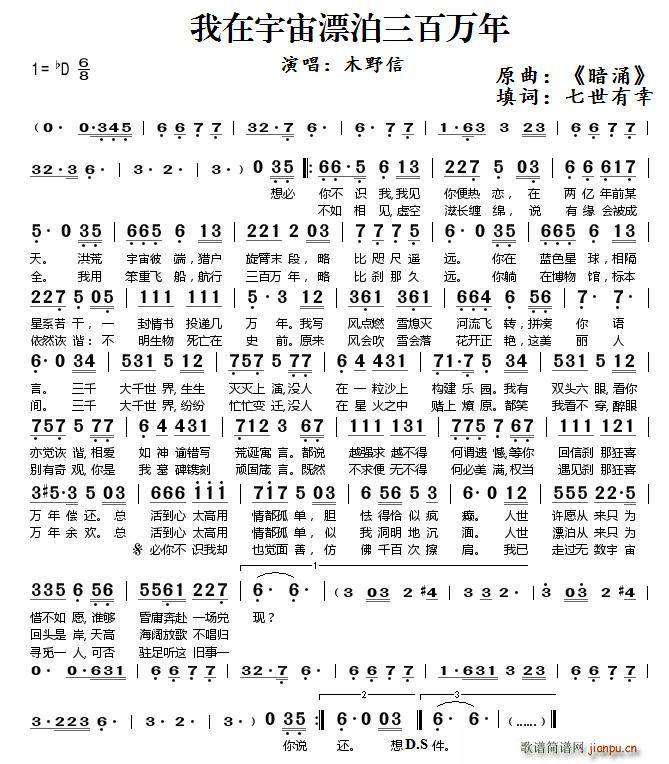 我在宇宙漂泊三百万年
演唱：木野信
1=♭D 6/8
原曲：《暗涌》
填词：七世有幸
(0· 0·345 | 6 6 7 7 | 32·7 6· | 6 6 7 7 | 1·63 3 23 | 6 6 7 7 |
32·3 6· | 3·2· | 3·2·) | 0 35 |: 66·5 6 13 | 227 5 03 | 6 6 617 |
想必 你不 识 我,我见 你便热 恋，在 两 亿 年前某
不如 相 见,虚空 滋长缠 绵，说 有 缘 会被成
5· 0 35 | 665 6 13 | 221 2 03 | 7 7 5 | 5· 0 35 | 665 6 13 |
天。 洪荒 宇宙彼 端,猎户 旋臂末 段，略 比 咫 尺 遥 远。 你在 蓝色星 球,相隔
全。 我用 笨重飞 船,航行 三百万 年，略 比 刹 那 久 远。 你躺 在博物 馆,标本
227 5 05 | 111 111 | 5·3 12 | 361 361 | 664 6 56 | 1 7 5 |
星系若 干，一 封情书 投递几 万 年。我写 风点燃 雪熄灭 河流飞 转,拼凑 你 语
依然诙 谐：不 明生物 死亡在 史 前。原来 风会吹 雪会落 花开正 艳,这美 丽 人
6· 0 34 | 531 5 12 | 757 5 77 | 6 4 431 | 71·7 34 | 531 5 12 |
言。 三千 大千世 界,生生 灭灭上 演,没人 在 一 粒沙上 构建 乐 园。我有 双头六 眼,看你
间。 三千 大千世 界,纷纷 忙忙变 迁,没人 在 星 火之中 赌上 燎 原。都笑 我看不 穿,醉眼
757 5 77 | 6 4 431 | 712 3 67 | 111 111 | 775 6 77 | 111 221 |
亦觉诙 谐,相爱 如 神 谕惜写 荒诞寓 言。都说 越强求 越不得 何谓遗 憾,等你 回信刹 那狂喜
别有奇 观,你是 我 墓 碑镌刻 顽固箴 言。既然 不求便 无不得 何必美 满,权当 遇见刹 那狂喜
3♯5·3 5 03 | 666 iii | 7i7 5 03 | 6 56 5 3 | 6· 0 12 | 555 22·5 |
万 年 偿 还。总 活到心 太高用 情都孤 单，胆 怯 得恰 似 疯 癫。 人世 许愿从 来只为
万 年 余 欢。总 活到心 太高用 情都孤 单，似 我 洞明 地 沉 湎。 人世 漂泊从 来只为
𝄋 必你不 识我却 也觉面 善，仿 佛 千百 次 擦 肩。 我已 走过无 数宇宙
335 6 56 | 5561 227 | 6· 6· | (3 03 03 | 2 ♯4 | 3 03 03 | 2 ♯4 |
惜不如 愿,谁够 昏庸奔赴 一场兑 现？
回头是 岸,天高 海阔放歌 不唱归
寻觅一 人,可否 驻足听这 旧事一
0· 0·631 | 6 6 7 7 | 32·7 6· | 6 6 7 7 | 1·631 3 23 | 6 6 7 7 |
3·223 6· | 3·2· | 3·2·) | 0 35 :| 6· 03 | 6· 6· | (……) |
你说 还。 想 D.S 件。
歌谱简谱网
jianpu.cn